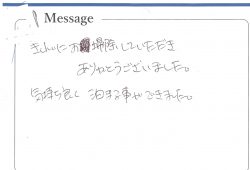 Message
きれいにお掃除していただき
ありがとうございました。
気持ち良く 泊まる事ができました。